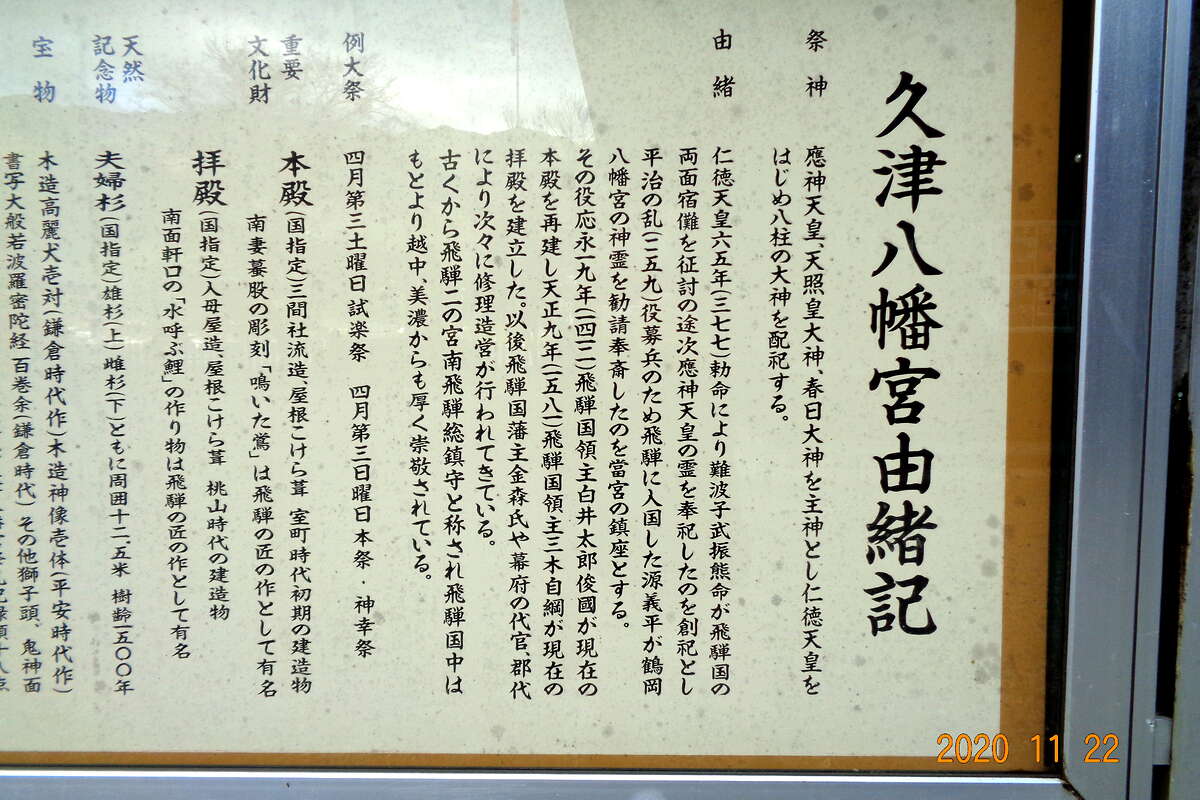 久津八幡宮由緒記
祭神
應神天皇、天照皇大神、春日大神を主神とし仁徳天皇を
はじめ八柱の大神を配祀する。
由緒
仁徳天皇六五年(三七七)勅命により難波子武振熊命が飛騨国の
両面宿儺を征討の途次應神天皇の霊を奉祀したのを創祀とし
平治の乱(一一五九)役募兵のため飛騨に入国した源義平が鶴岡
八幡宮の神霊を勧請奉斎したのを當宮の鎮座とする。
その役応永一九年(一四一二)飛騨国領主白井太郎俊國が現在の
本殿を再建し天正九年(一五八一)飛騨国領主三木自綱が現在の
拝殿を建立した。以後飛騨国藩主金森氏や幕府の代官、郡代
により次々に修理造営が行われてきている。
古くから飛騨二の宮南飛騨総鎮守と称され飛騨国中は
もとより越中、美濃からも厚く崇敬されている。
例大祭
四月第三土曜日試楽祭 四月第三日曜日本祭・神幸祭
重要
文化財
本殿(国指定)三間社流造、屋根こけら葺 室町時代初期の建造物
南妻蟇股の彫刻「鳴いた鴬」は飛騨の匠の作として有名
拝殿(国指定)入母屋造、屋根こけら葺 桃山時代の建造物
南面軒口の「水呼ぶ鯉」の作り物は飛騨の匠の作として有名
天然
記念物
夫婦杉(国指定)雄杉(上)雌杉(下)ともに周囲十二、五米 樹齢一五〇〇年
宝物
木造高麗犬壱対(鎌倉時代作)木造神像壱体(平安時代作)
書写大般若波羅密陀経 百巻余(鎌倉時代) その他獅子頭、鬼神面
2020 11 22